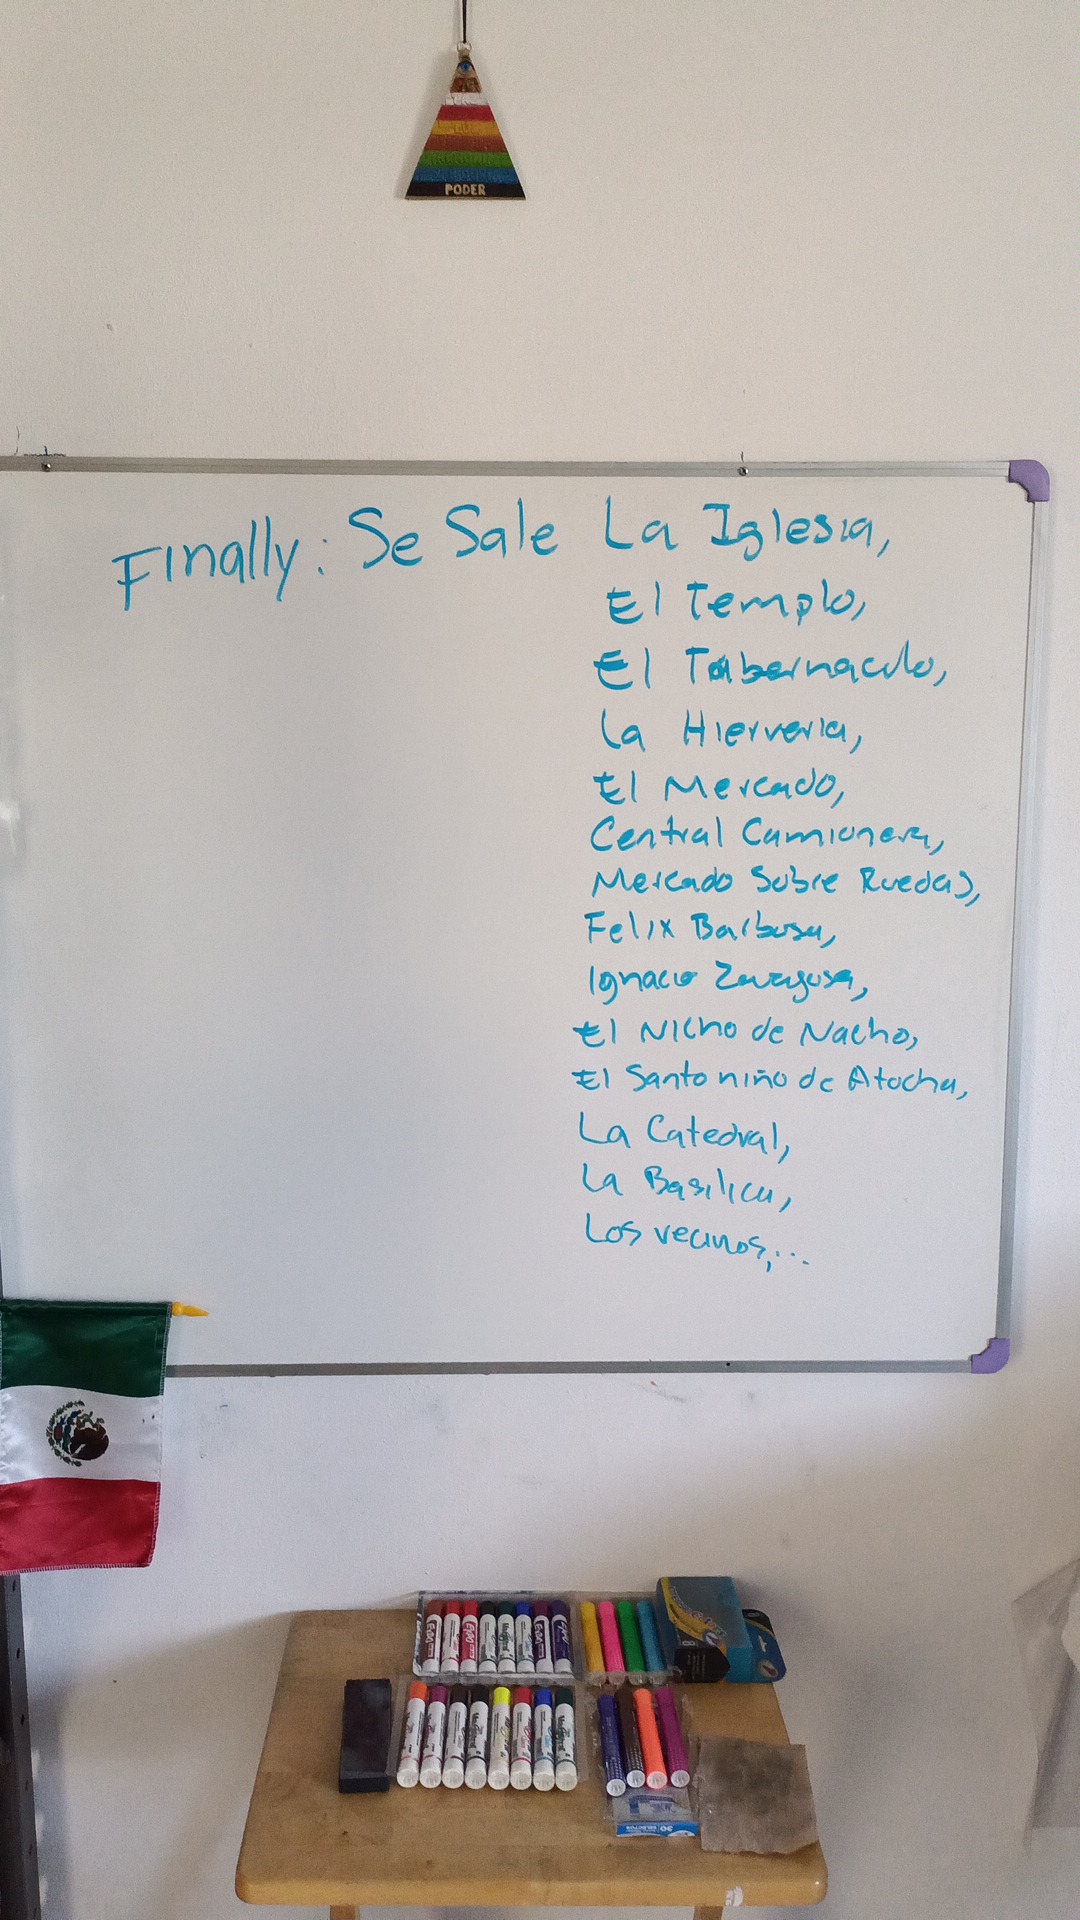 PODER
Finally: Se Sale La Iglesia,
El Templo,
El Tabernaculo,
La Hierveria,
El Mercado,
Central Camionera,
Mercado Sobre Ruedas,
Felix Barbosa,
Ignacio Zaragosa,
El Nicho de Nacho,
El Santo niño de Atocha,
La Catedral,
La Basilica,
Los vecinos,...
EXPO